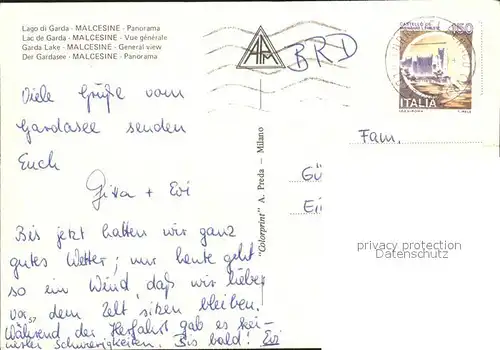 Lago di Garda - MALCESINE - Panorama
Lac de Garda - MALCESINE - Vue générale
Garda Lake - MALCESINE - General view
Der Gardasee - MALCESINE - Panorama
BRD
450
ITALIA
Viele Grüße vom
Gardasee senden
Euch
Gitta + Evi
Bis jetzt hatten wir ganz
gutes Wetter; nur heute geht
so ein Wind, daß wir lieber
vor dem Zelt sitzen bleiben.
Während der Herfahrt gab es kei-
nerlei Schwierigkeiten. Bis bald! Evi
57
"Colorprint" A. Preda — Milano
Fam.
GÜ
Ei
privacy protection
Datenschutz